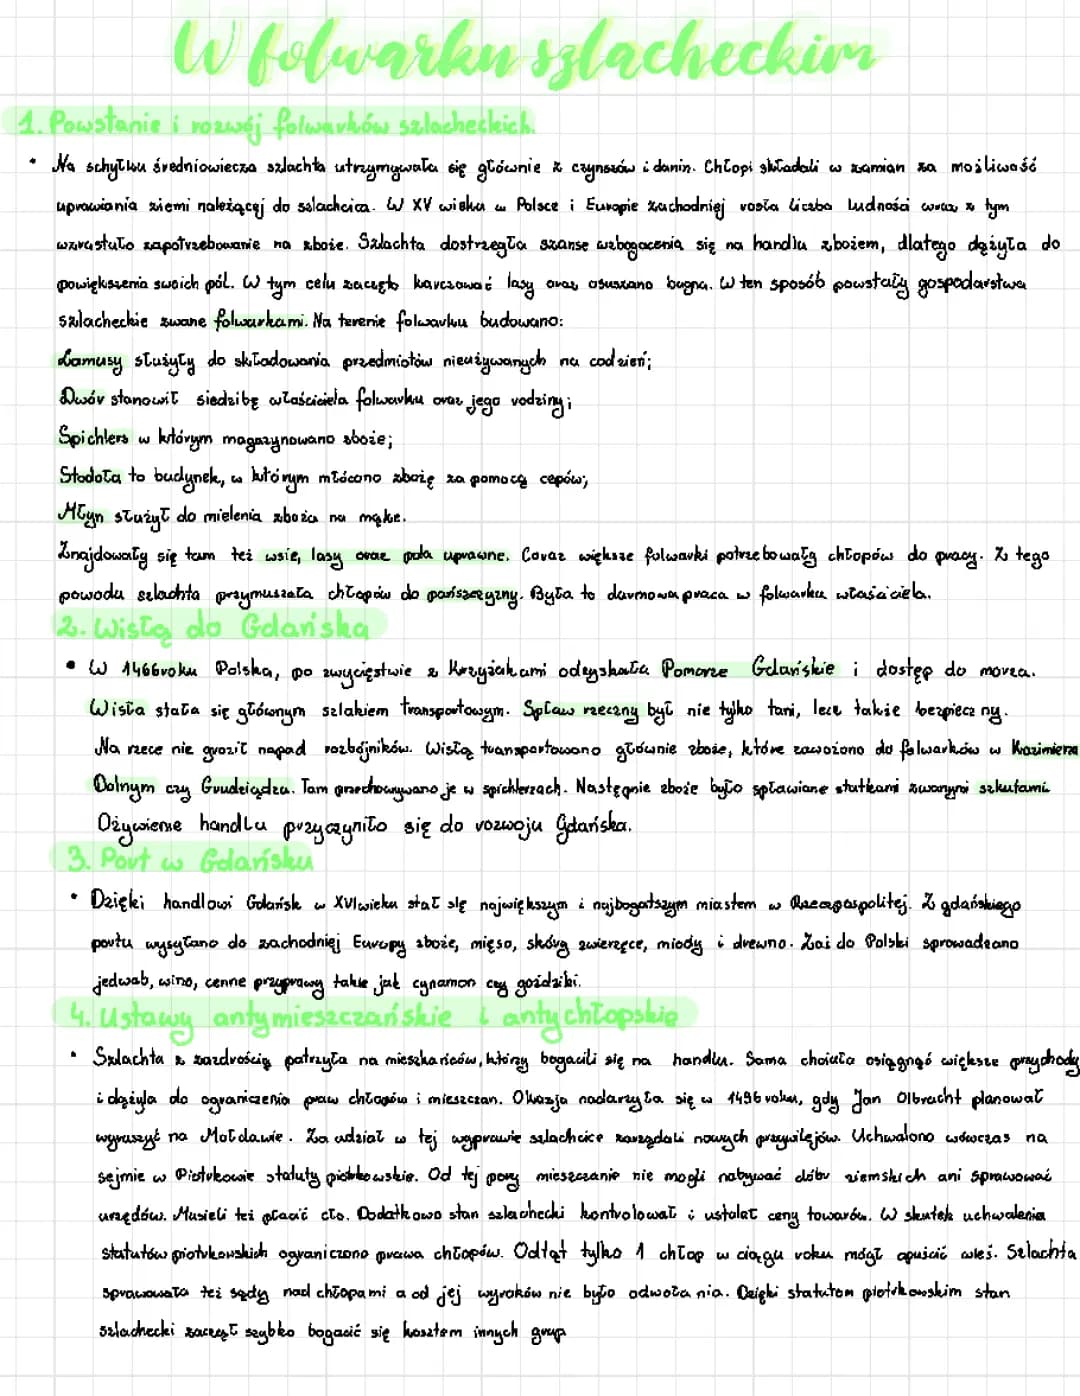 W folwarku szlacheckim
1. Powstanie i rozwój folwarków szlacheckich.
• Na schyłku średniowiecza szlachta utrzymywała się głównie z czynszów i danin. Chłopi składali w zamian za możliwość
uprawiania ziemi należącej do szlachcica. W XV wieku w Polsce i Europie zachodniej rosła liczba ludności wraz z tym
wzrastało zapotrzebowanie na zboże. Szlachta dostrzegła szanse wzbogacenia się na handlu zbożem, dlatego dążyła do
powiększenia swoich pól. W tym celu zaczęto karczować lasy oraz osuszano bagna. W ten sposób powstały gospodarstwa
szlacheckie zwane folwarkami. Na terenie folwarku budowano:
Lamusy służyły do składowania przedmiotów nieużywanych na codzień;
Dwór stanowił siedzibę właściciela folwarku oraz jego rodziny;
Spichlerz w którym magazynowano zboże;
Stodoła to budynek, w którym młócono zboże za pomocą cepów;
Młyn służył do mielenia zboża na mąkę.
Znajdowały się tam też wsie, lasy oraz pola uprawne. Coraz większe folwarki potrzebowały chłopów do pracy. Z tego
powodu szlachta przymuszała chłopów do pańszczyzny. Była to darmowa praca w folwarku właściciela.
2. Wisłą do Gdańska
• W 1466 roku Polska, po zwycięstwie z Krzyżakami odzyskała Pomorze Gdańskie i dostęp do morza.
Wisła stała się głównym szlakiem transportowym. Spław rzeczny był nie tylko tani, lecz także bezpieczny.
Na rzece nie groził napad rozbójników. Wisłą transportowano głównie zboże, które zawożono do folwarków w Kazimierza
Dolnym czy Grudziądzu. Tam przechowywano je w spichlerzach. Następnie zboże było spławiane statkami zwanymi szkutami.
Ożywienie handlu przyczyniło się do rozwoju Gdańska.
3. Port w Gdańsku
• Dzięki handlowi Gdańsk w XVI wieku stał się największym i najbogatszym miastem w Rzeczpospolitej. Z gdańskiego
portu wysyłano do zachodniej Europy zboże, mięso, skóry zwierzęce, miody i drewno. Zaś do Polski sprowadzano
jedwab, wino, cenne przyprawy takie jak cynamon czy goździki.
4. Ustawy antymieszczańskie i antychłopskie
• Szlachta z zazdrością patrzyła na mieszkańców, którzy bogacili się na handlu. Sama chciała osiągnąć większe przychody
i dążyła do ograniczenia praw chłopów i mieszczan. Okazja nadarzyła się w 1496 roku, gdy Jan Olbracht planował
wyruszyć na Mołdawie. Za udział w tej wyprawie szlachcice zarządali nowych przywilejów. Uchwalono wówczas na
sejmie w Piotrkowie statuty piotrkowskie. Od tej pory mieszczanie nie mogli nabywać dóbr ziemskich ani sprawować
urzędów. Musieli też płacić cło. Dodatkowo stan szlachecki kontrolował i ustalał ceny towarów. W skutek uchwalenia
statutów piotrkowskich ograniczono prawa chłopów. Odtąt tylko 1 chłop w ciągu roku mógł opuścić wieś. Szlachta
sprawowała też sądy nad chłopami a od jej wyroków nie było odwołania. Dzięki statutom piotrkowskim stan
szlachecki zaczął szybko bogacić się kosztem innych grup